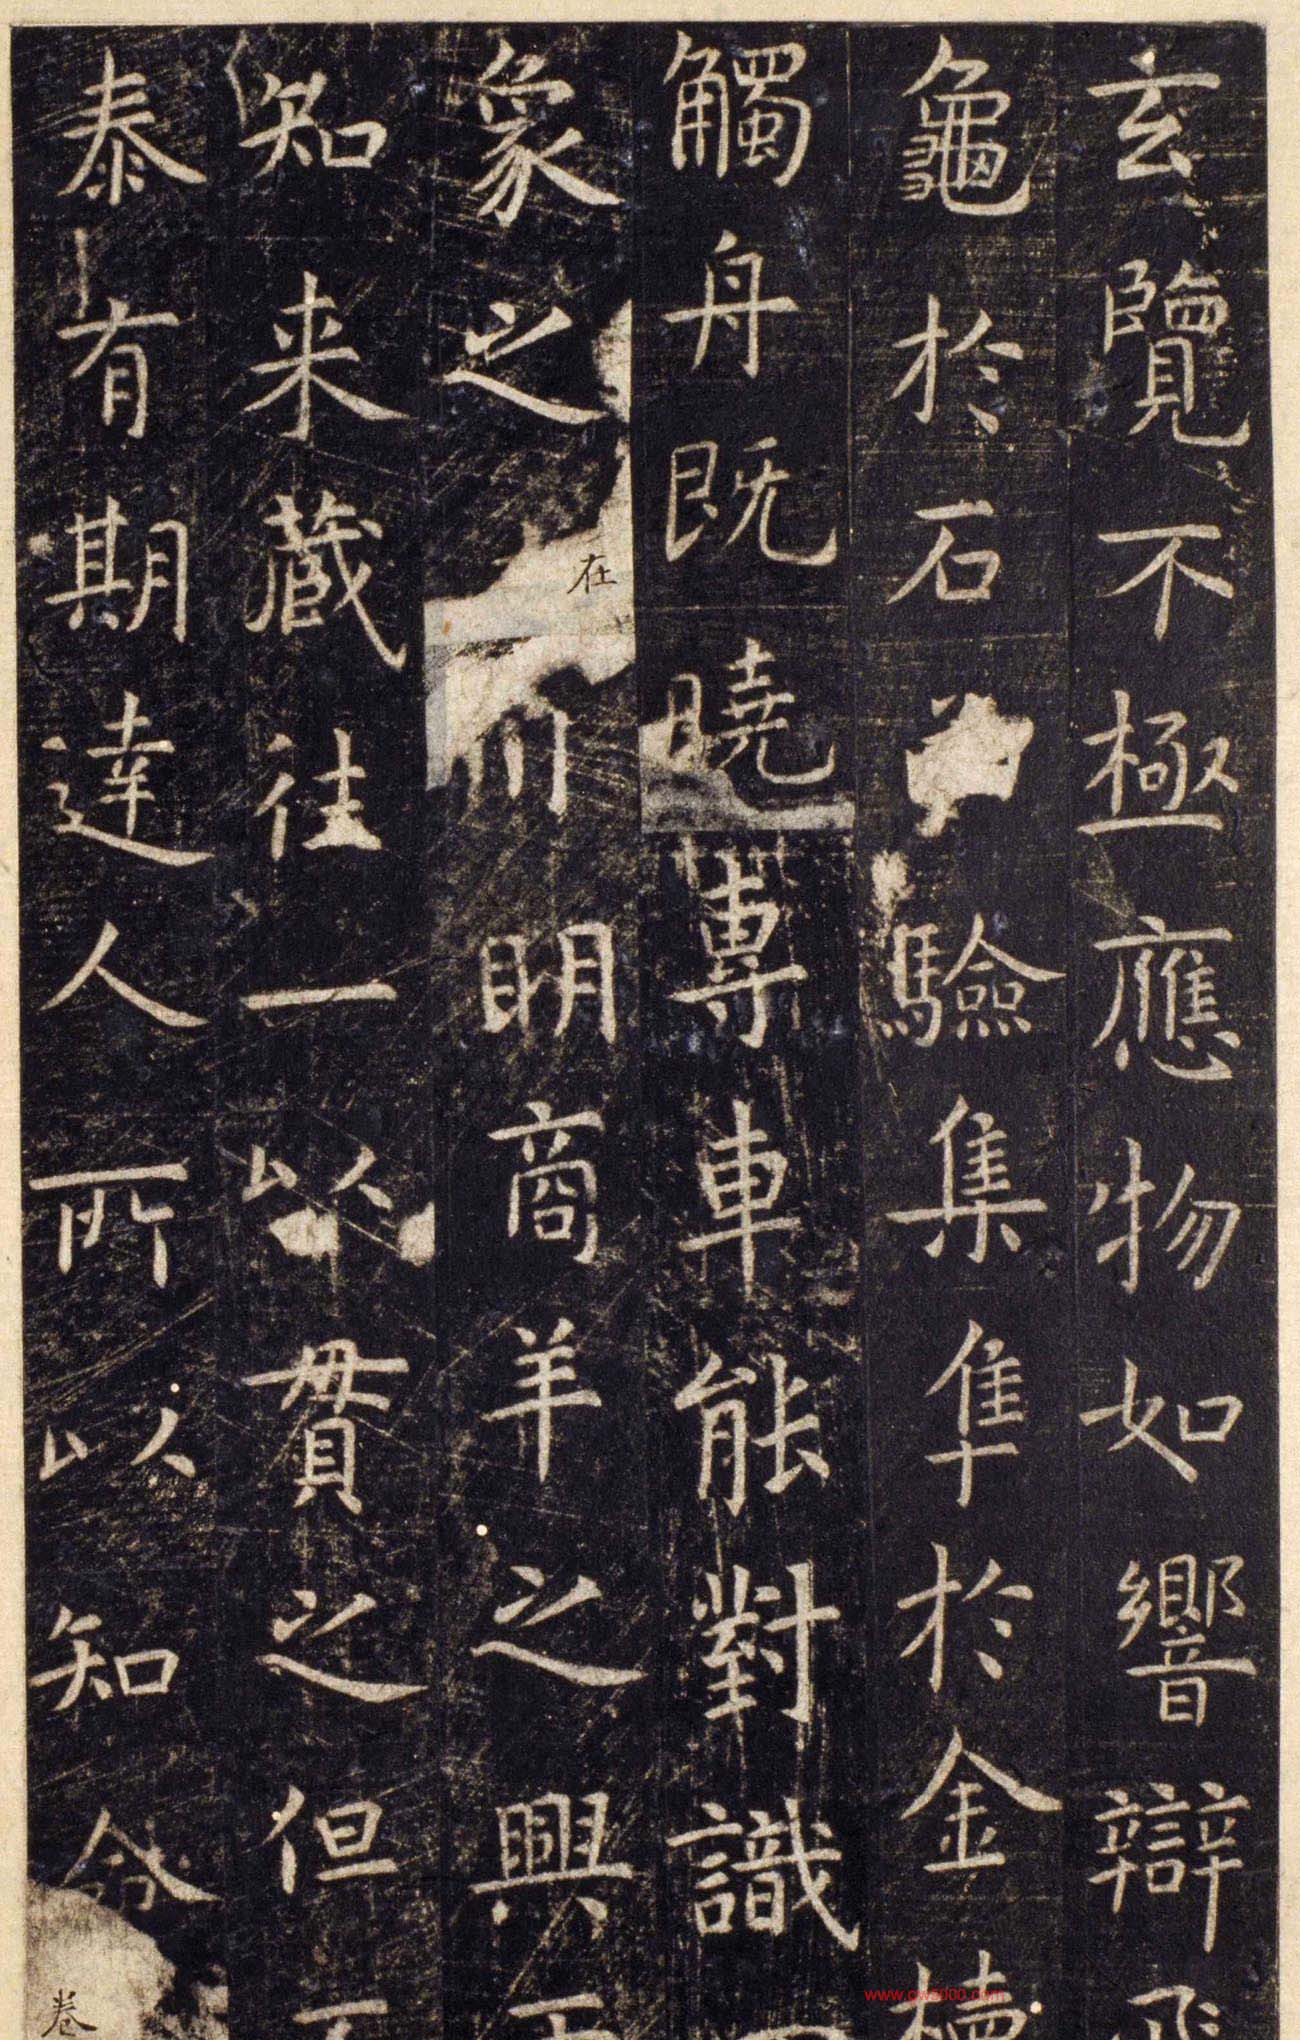 玄覽不極應物如響辯飛
龜於石 驗集隼於金樻
觸舟既曉專車能對識
象之在川明商羊之興
知来藏往一以貫之但
泰有期達人所以知命
卷
www.cw2000.com